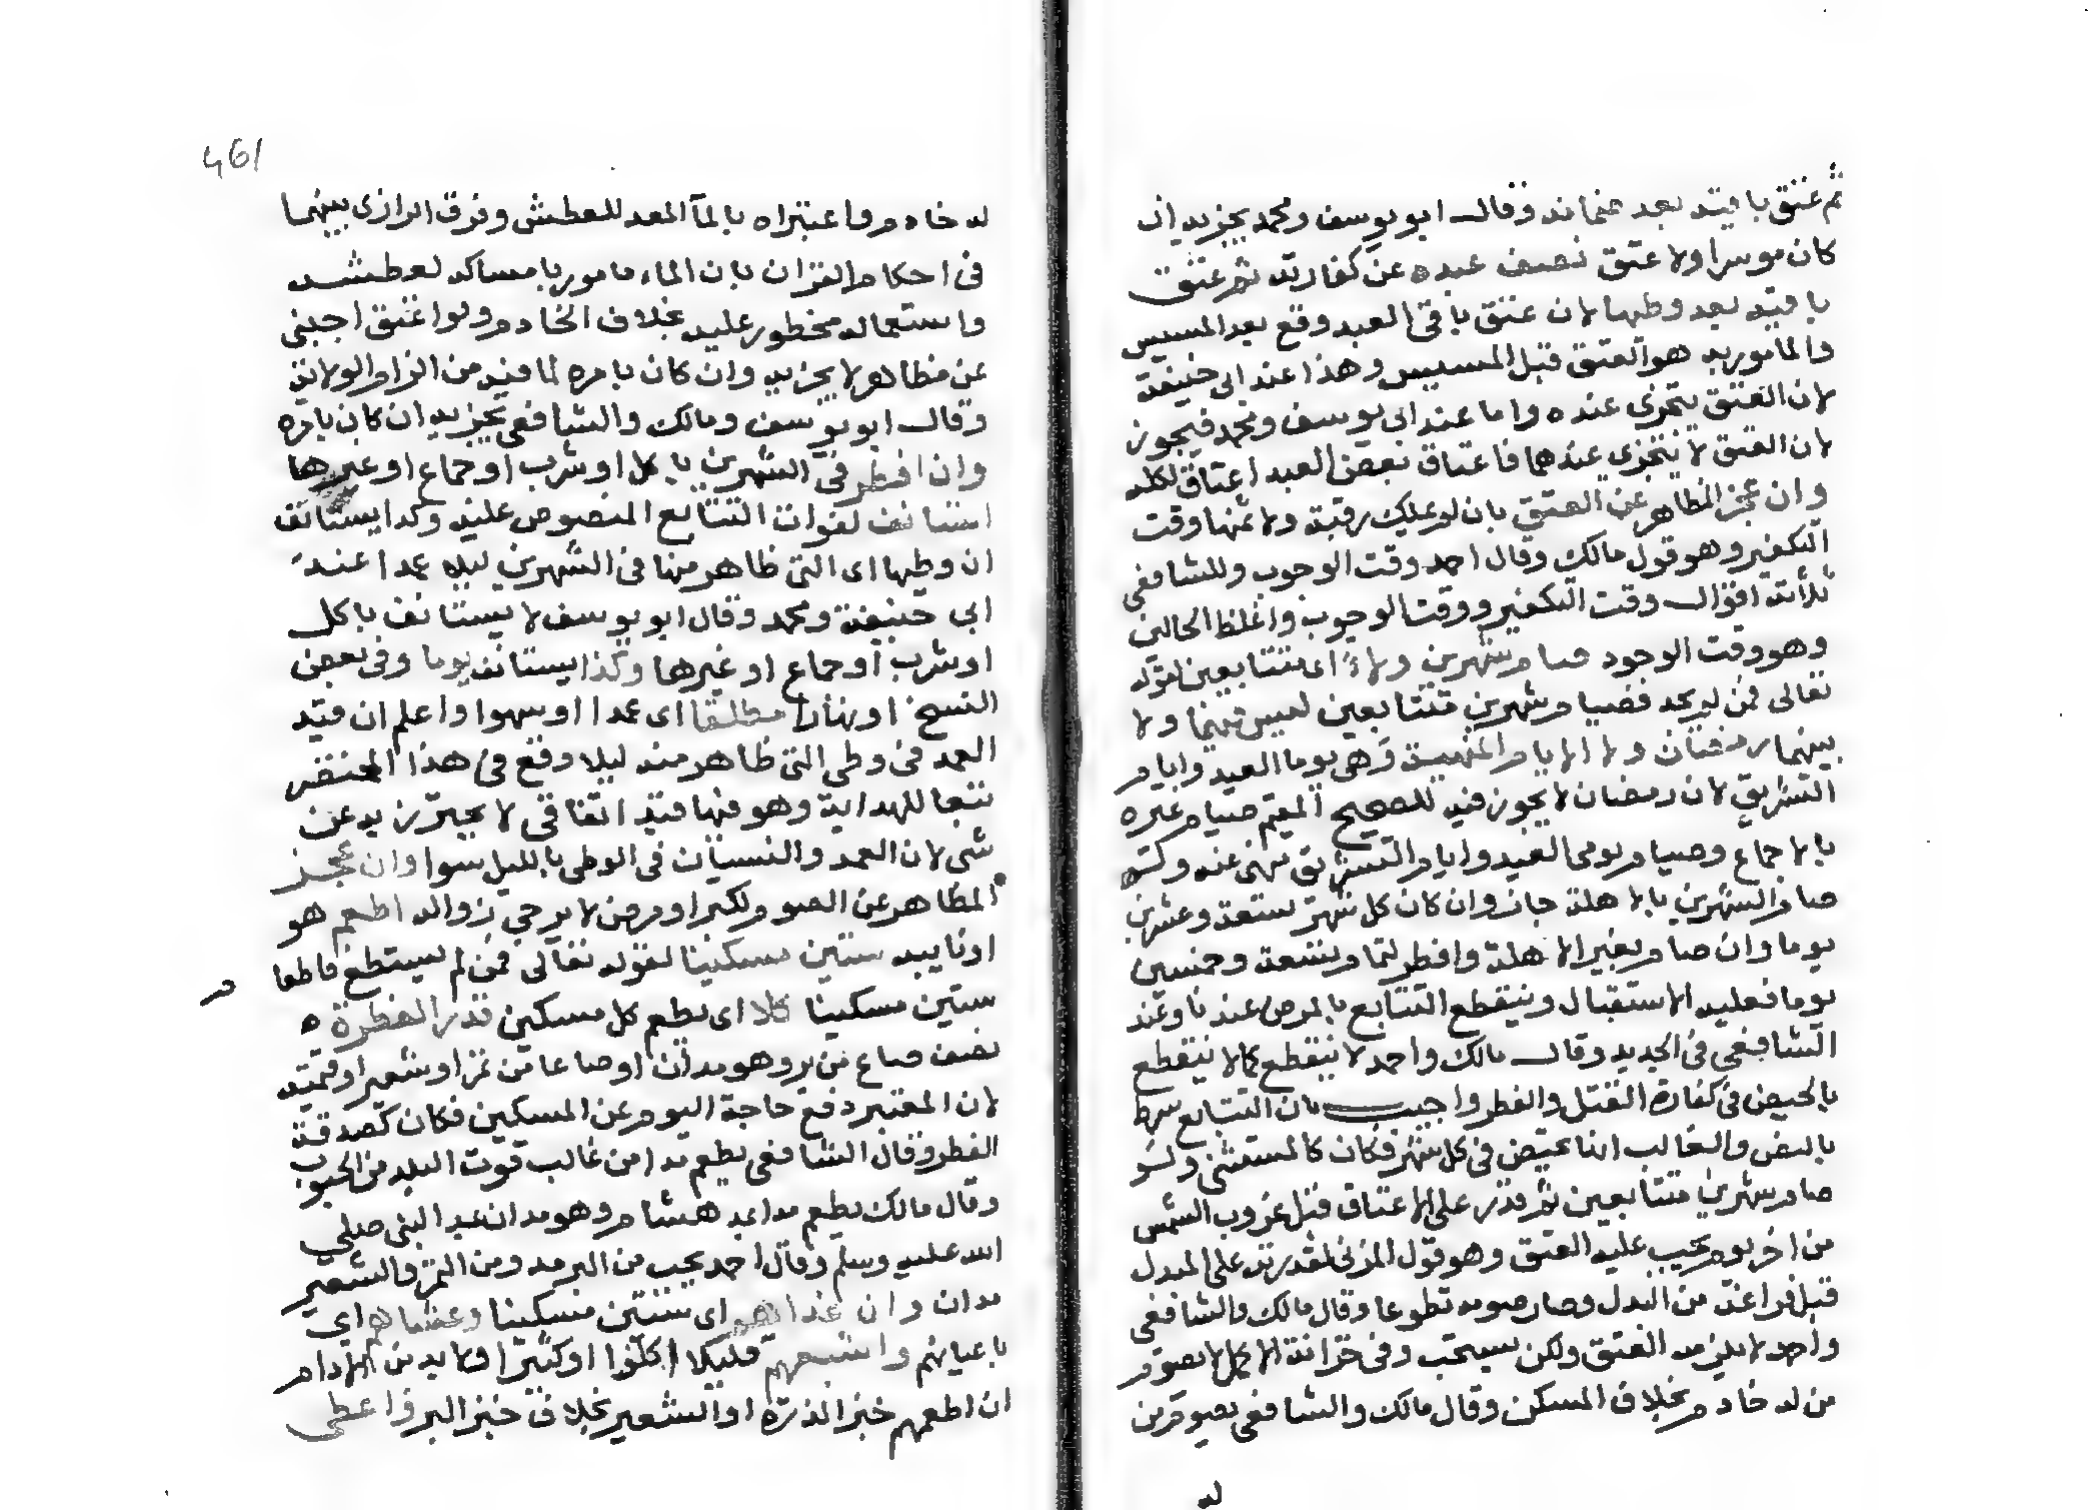 ثم عتق باقيه بعد ضمانه وقال ابو يوسف ومحمد يجزيه ان
كان موسرا ولا عتق نصف عبده عن كفارته ثم عتق
باقيه بعد وطيها لان عتق باقى العبد وقع بعد المسيس
والمامور به هو العتق قبل المسيس وهذا عند ابى حنيفة
لان العتق يتجزى عنده واما عند ابى يوسف ومحمد فيجوز
لان العتق لا يتجزى عندهما فاعتاق بعض العبد اعتاق لكله
وان عجز المظاهر عن العتق بان لم يملك رقبة ولا ثمنها وقت
التكفير وهو قول مالك وقال احمد وقت الوجوب وللشافعى
ثلاثة اقوال وقت التكفير ووقت الوجوب واغلظ الحالين
وهو وقت الوجود صام شهرين ولاءً اى متتابعين لقوله
تعالى فمن لم يجد فصيام شهرين متتابعين ليس فيهما ولا
بينهما رمضان ولا الايام المنهية وهى يوما العيد وايام
التشريق لان رمضان لا يجوز فيه للصحيح المقيم صيام غيره
بالاجماع وصيام يومى العيد وايام التشريق نهى عنه وكره
صام الشهرين بالاهلة جاز وان كان كل شهر تسعة وعشرين
يوما وان صام بغير الاهلة وافطر لتمام تسعة وخمسين
يوما فعليه الاستقبال وينقطع التتابع بالمرض عندنا وعند
الشافعى فى الجديد وقال مالك واحمد لا ينقطع كما لا ينقطع
بالحيض فى كفارة القتل والفطر واجيب بان التتابع شرط
بالنص والغالب انها تحيض فى كل شهر فكان كالمستثنى ولو
صام شهرين متتابعين ثم قدر على الاعتاق قبل غروب الشمس
من اخر يوم يجب عليه العتق وهو قول المزنى لقدرته على المبدل
قبل فراغه من البدل وصار صومه تطوعا وقال مالك والشافعى
واحمد لا يلزمه العتق ولكن يستحب وفى خزانة الاكمل لا يصوم
من له خادم بخلاف المسكن وقال مالك والشافعى يصوم من
له
461
له خادم فاعتبراه بالمآ المعد للعطش وفرق الرازى بينهما
فى احكام القران بان الماء مامور بامساكه لعطشه
واستعماله محظور عليه بخلاف الخادم ولو اعتق اجنبى
عن مظاهر لا يجزيه وان كان بامره لما فيه من الزام الولاية
وقال ابو يوسف ومالك والشافعى يجزيه ان كان بامره
وان افطر فى الشهرين باكل او شرب او جماع او غيرها
استانف لفوات التتابع المنصوص عليه وكذا يستانف
ان وطيها اى التى ظاهر منها فى الشهرين ليلا عمدا عند
ابى حنيفة ومحمد وقال ابو يوسف لا يستانف باكل
او شرب او جماع او غيرها وكذا يستانف يوما وفى بعض
النسخ او نهارا مطلقا اى عمدا او سهوا واعلم ان قيد
العمد فى وطى التى ظاهر منه ليلا وقع فى هذا المختصر
تبعا للهداية وهو فيها قيد اتفاقى لا يحترز به عن
شى لان العمد والنسيان فى الوطى بالليل سوا وان عجز
المظاهر عن الصوم لكبر او مرض لا يرجى زواله اطعم هو
او نايبه ستين مسكينا لقوله تعالى فمن لم يستطع فاطعا
م
ستين مسكينا كلا اى يطعم كل مسكين قدر الفطرة ه
نصف صاع من بر وهو مدان او صاعا من تمر او شعير او قيمته
لان المعتبر دفع حاجة اليوم عن المسكين فكان كصدقة
الفطر وقال الشافعى يطعم مدا من غالب قوت البلد من الحبوب
وقال مالك يطعم مدا بمد هشام وهو مدان بمد النبى صلى
الله عليه وسلم وقال احمد يجب من البر مد ومن التمر والشعير
مدان وان غداهم اى ستين مسكينا وعشاهم اى
باعيانهم واشبعهم قليلا اكلوا او كثيرا ولا بد من الادام
ان اطعمهم خبز الذرة او الشعير بخلاف خبز البر واعطى